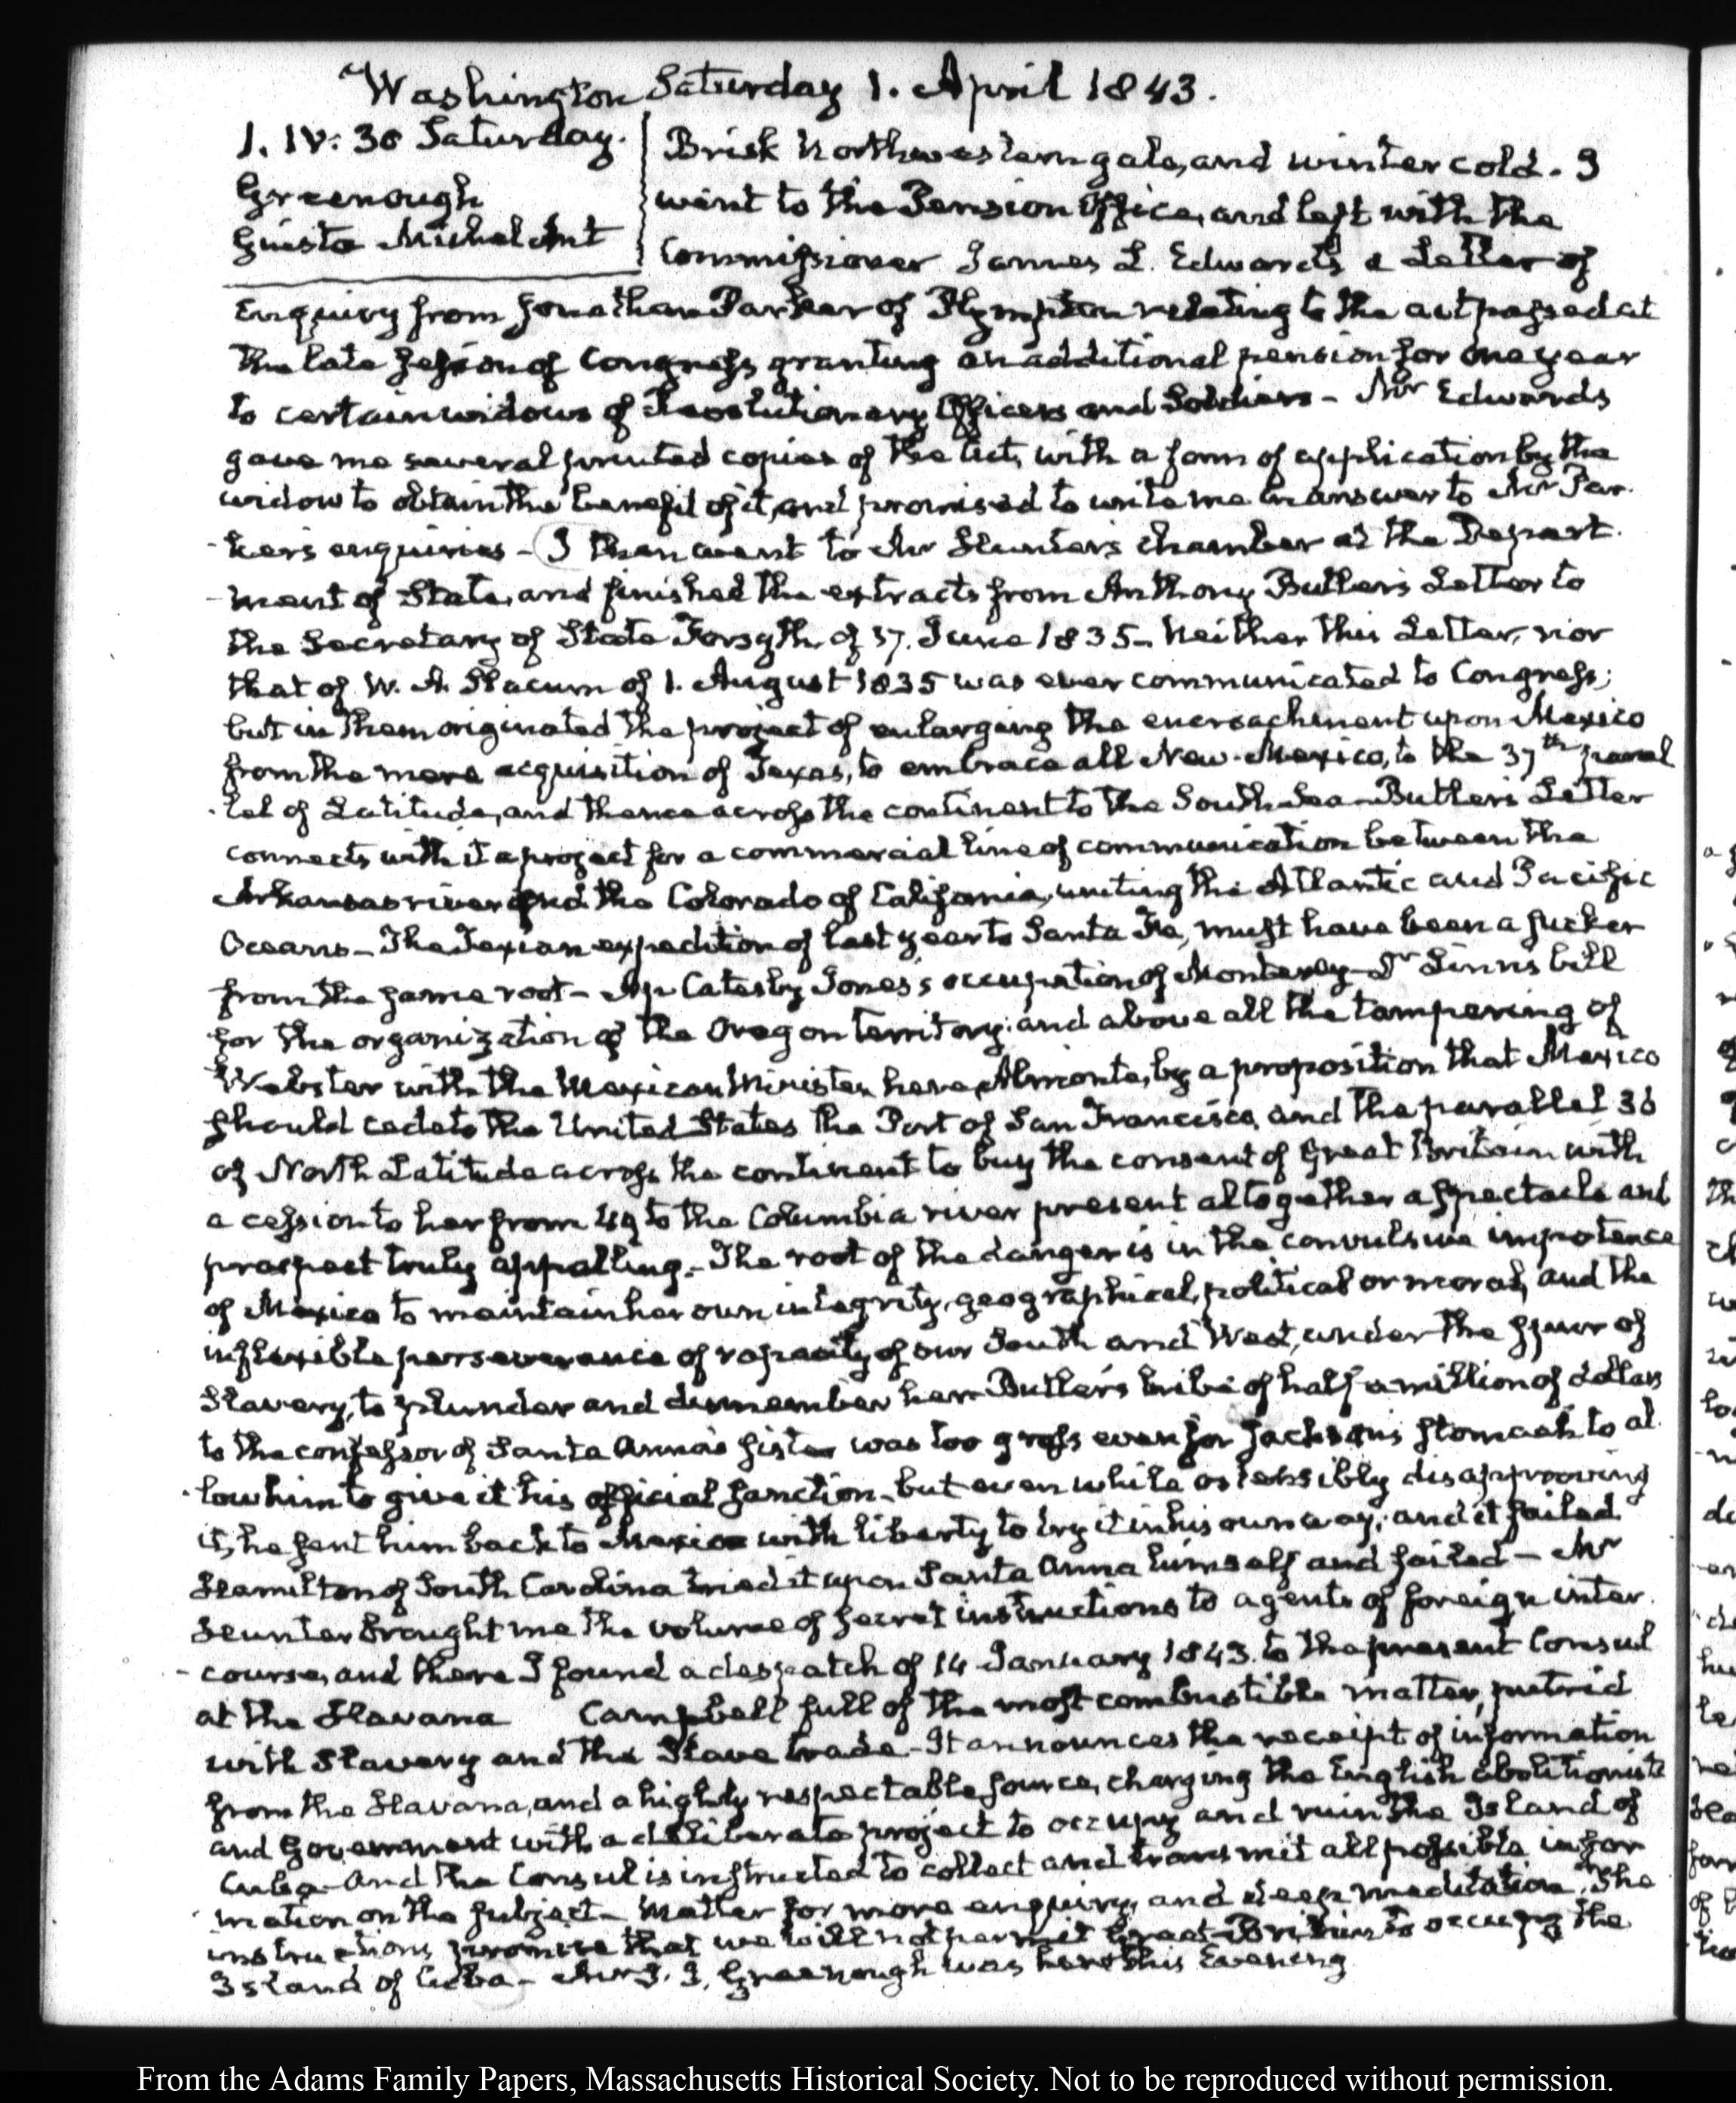 Washington Saturday 1. April 1843.
1. IV: 30 Saturday.
Greenough
Giusta Michel Ant
Brisk Northwestern gale, and winter cold. I
went to the Pension Office, and left with the
Commissioner James L. Edwards a Letter of
Enquiry from Jonathan Parker of Plympton relating to the act passed at
the late Session of Congress granting an additional pension for one year
to certain widows of Revolutionary Officers and Soldiers - Mr Edwards
gave me several printed copies of the Act, with a form of application by the
widow to obtain the benefit of it, and promised to write me in answer to Mr Par-
-kers enquiries - I then went to Mr Hunter's chamber at the Depart-
-ment of State, and finished the extracts from Anthony Butler's Letter to
the Secretary of State Forsyth, of 17. June 1835 - Neither this Letter, nor
that of W. A. Slacum of 1. August 1835 was ever communicated to Congress;
but in them originated the project of enlarging the encroachment upon Mexico
from the mere acquisition of Texas, to embrace all New-Mexico, to the 37th paral
-lel of Latitude, and thence across the continent to the South Sea - Butler's Letter
connects with it a project for a commercial line of communication between the
Arkansas river and the Colorado of California, uniting the Atlantic and Pacific
Oceans - The Texian expedition of last year to Santa Fe, must have been a sucker
from the same root - Ap Catesby Jones's occupation of Monterey - Dr Linn's bill
for the organization of the Oregon territory; and above all the tampering of
Webster with the Mexican Minister here, Almonte, by a proposition that Mexico
should cede to the United States the Port of San Francisco, and the parallel 36
of North Latitude across the continent to buy the consent of Great Britain with
a cession to her from 49 to the Columbia river present altogether a spectacle and
prospect truly appalling. - The root of the danger is in the convulsive impotence
of Mexico to maintain her own integrity, geographical, political or moral, and the
inflexible perseverance of rapacity of our South and West, under the spur of
Slavery, to plunder and dismember her - Butler's bribe of half a million of dollars
to the confessor of Santa Anna's sister was too gross even for Jackson's stomach to al-
-low him to give it his official sanction - but even while ostensibly disapproving
it, he sent him back to Mexico with liberty to try it in his own way; and it failed
Hamilton of South Carolina tried it upon Santa Anna himself and failed - Mr
Hunter brought me the volume of secret instructions to agents of foreign inter-
-course, and there I found a despatch of 14 January 1843. to the present Consul
at the Havana Campbell full of the most combustible matter, putrid
with Slavery and the Slave trade - It announces the receipt of information
from the Havana, and a highly respectable source, charging the English abolitionists
and Government with a deliberate project to occupy and ruin the Island of
Cuba - And the Consul is instructed to collect and transmit all possible infor
-mation on the subject - Matter for more enquiry, and deep meditation. The
instructions promise that we will not permit Great-Britain to occupy the
Island of Cuba - Mr J. J. Greenough was here this Evening
From the Adams Family Papers, Massachusetts Historical Society. Not to be reproduced without permission.